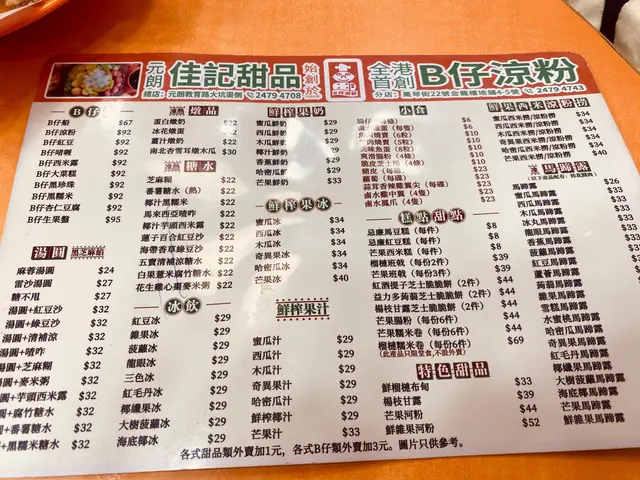 元朗 佳記甜品 始創於
總店：元朗教育路大坑渠側 2479 4708
全港首創 B仔涼粉
分店：鳳琴街22號金龍樓地舖4-5號 2479 4743
B仔
B仔船 $67
B仔涼粉 $92
B仔紅豆 $92
B仔啫喱 $92
B仔西米露 $92
B仔大菜糕 $92
B仔黑珍珠 $92
B仔黑糯米 $92
B仔杏仁豆腐 $92
B仔生果盤 $95
湯圓 黑芝麻餡
麻蓉湯圓 $24
雷沙湯圓 $27
糖不甩 $27
湯圓+紅豆沙 $32
湯圓+綠豆沙 $32
湯圓+清補涼 $32
湯圓+喳咋 $32
湯圓+芝麻糊 $32
湯圓+麥米粥 $32
湯圓+芋頭西米露 $32
+腐竹糖水 $32
+番薯糖水 $32
+黑糯米糖水 $32
燉品
蛋白燉奶 $22
冰花燉蛋 $22
薑汁燉奶 $22
南北杏雪耳燉木瓜 $30
糖水
芝麻糊 $22
番薯糖水（熱） $22
椰汁黑糯米 $22
馬來西亞喳咋 $22
椰汁芋頭西米露 $22
蓮子百合紅豆沙 $22
海帶香草綠豆沙 $22
五寶清補涼糖水 $22
白果薏米腐竹糖水 $22
花生雞心棗麥米粥 $22
冰飲
紅豆冰 $29
雜果冰 $29
菠蘿冰 $29
龍眼冰 $29
三色冰 $29
紅毛丹冰 $29
椰纖果冰 $29
大樹菠蘿冰 $29
海底椰冰 $29
鮮榨果奶
蜜瓜鮮奶 $33
西瓜鮮奶 $33
木瓜鮮奶 $33
椰汁鮮奶 $33
香蕉鮮奶 $33
哈密瓜鮮奶 $33
芒果鮮奶 $33
鮮榨果冰
蜜瓜冰 $34
西瓜冰 $34
木瓜冰 $34
奇異果冰 $34
哈密瓜冰 $34
芒果冰 $40
鮮榨果汁
蜜瓜汁 $29
西瓜汁 $29
木瓜汁 $29
奇異果汁 $29
哈密瓜汁 $29
鮮榨椰汁 $29
芒果汁 $33
小食
腸仔（4條）
魚蛋（每隻）
魚燒賣（6粒）
牛肉燒賣（5粒）
咖哩魚蛋（8粒）
爽滑腸粉（4條）
脆皮芝士腸（1條）
豬皮（每碟）
蘿蔔（每碟）
蒜茸香辣雞翼尖（每碟）
鹵水雞中翼（每碟）
鹵水鳳爪（每碟）
糕點甜點
忌廉馬豆糕（每件） $8
忌廉紅豆糕（每件） $8
芒果西米糕（每件）
榴槤班戟（每份2件）
芒果班戟（每份3件） $39
紅酒提子芝士脆脆餅（2件） $44
益力多蒟蒻芝士脆脆餅（2件） $44
楊枝甘露芝士脆脆餅（2件） $44
芒果腸粉（每份6件） $44
芒果糯米卷（每份6件） $44
榴槤糯米卷（每份6件） $69
(此產品只限堂食,不設外賣)
特色甜品
鮮榴槤布甸 $33
楊枝甘露 $39
芒果河粉 $44
鮮雜果河粉 $52
鮮果西米涼粉撈
蜜瓜西米撈/涼粉撈
西瓜西米撈/涼粉撈
木瓜西米撈/涼粉撈
哈密瓜西米撈/涼粉撈
奇異果西米撈/涼粉撈
芒果西米撈/涼粉撈 $40
馬蹄露
馬蹄露 $26
蜜瓜馬蹄露 $33
西瓜馬蹄露
木瓜馬蹄露
冰丸馬蹄露
龍眼馬蹄露
香蕉馬蹄露
椰汁馬蹄露
紅豆馬蹄露
蘆薈馬蹄露
芋頭馬蹄露
蒟蒻馬蹄露
菠蘿馬蹄露
雜果馬蹄露
雪糕馬蹄露
水蜜桃馬蹄露
哈密瓜馬蹄露
奇異果馬蹄露
芒果馬蹄露
紅毛丹馬蹄露
椰纖果馬蹄露
大樹菠蘿馬蹄露
海底椰馬蹄露
鮮雜果馬蹄露
各式甜品類外賣加1元，各式B仔類外賣加3元。圖片只供參考。